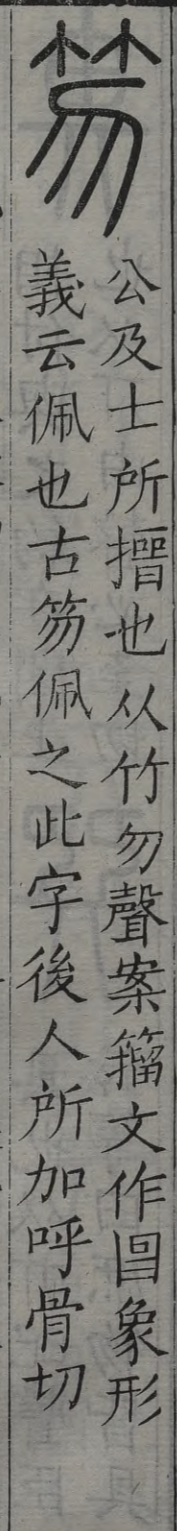 笏
公及士所搢也从竹勿聲案籀文作𠚳象形
義云佩也古笏佩之此字後人所加呼骨切